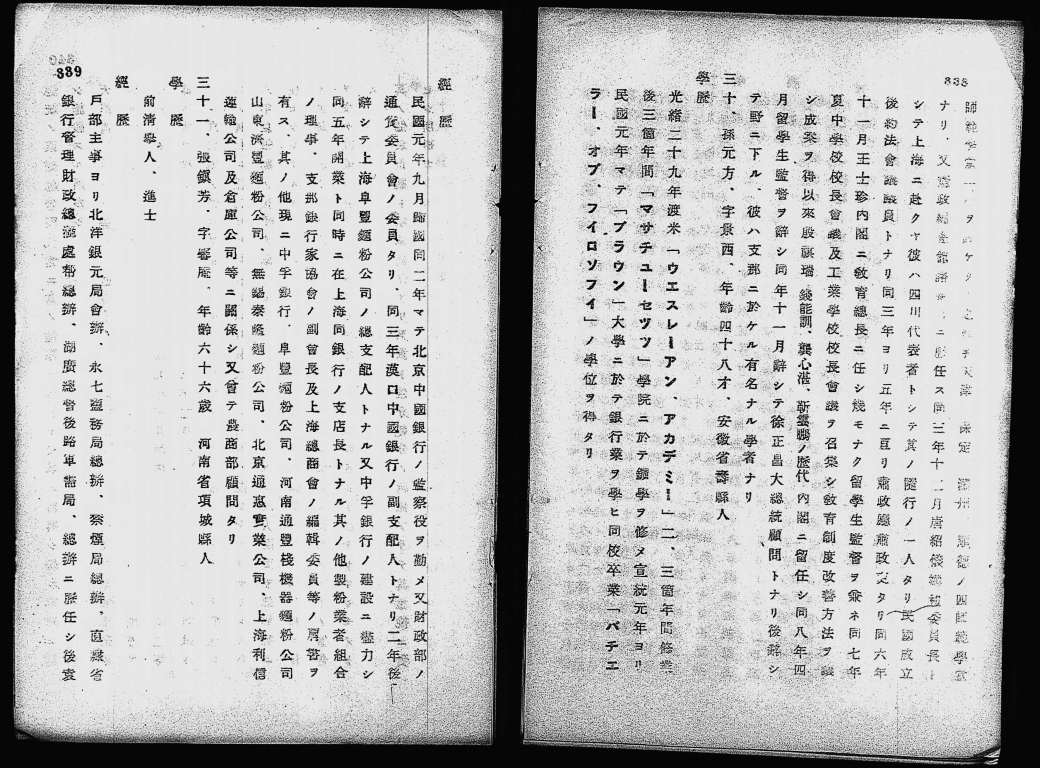 338
ナリ、又
シテ上海ニ赴クヤ彼ハ四川代表者トシテ其ノ隨行ノ一人タリ民國成立
後約法會議議員トナリ同三年ヨリ五年ニ亘リ肅政廳肅政史タリ同六年
十一月王士珍內閣ニ敎育總長ニ任シ幾モナク留學生監督ヲ兼ネ同七年
夏中學校校長會議及工業學校校長會議ヲ召集シ敎育制度改善方法ヲ議
シ成案ヲ得以來段祺瑞、錢能訓、龔心湛、靳雲鵬ノ歷代內閣ニ留任シ同八年四
月留學生監督ヲ辭シ同年十一月辭シテ徐正昌大總統顧問トナリ後辭シ
テ野ニ下ル、彼ハ支那ニ於ケル有名ナル學者ナリ
三十、孫元方、字景西、年齡四十八才、安徽省壽縣人
學歷
光緖二十九年渡米「ウエスレーアン、アカデミー」二、三箇年間修業
後三箇年間「マサチユーセツツ」學院ニ於テ鑛學ヲ修メ宣統元年ヨリ
民國元年マテ「ブラウン」大學ニ於テ銀行業ヲ學ヒ同校卒業「バチエ
ラー、オブ、フイロソフイー」ノ學位ヲ得タリ
339
經歷
民國元年九月歸國同二年マテ北京中國銀行ノ監察役ヲ勤メ又財政部ノ
通貨委員會ノ委員タリ、同三年漢口中國銀行ノ副支配人トナリ二年後
辭シテ上海阜豐麵粉公司ノ總支配人トナル又中孚銀行ノ建設ニ盡力シ
同五年開業ト同時ニ在上海同銀行ノ支店長トナル其ノ他製粉業者組合
ノ理事、支那銀行家協會ノ副會長及上海總商會ノ編輯委員等ノ肩書ヲ
有ス、其ノ他現ニ中孚銀行、阜豐麵粉公司、河南通豐棧機器麵粉公司
山東濟豐麵粉公司、無錫泰隆麵粉公司、北京通惠實業公司、上海利信
運輸公司及倉庫公司等ニ關係シ又曾テ農商部顧問タリ
三十一、張鎭芳、字馨庵、年齡六十六歲　河南省項城縣人
學歷
前淸擧人、進士
經歷
戶部主事ヨリ北洋銀元局會辦、永七鹽務局總辦、察煙局總辦、直隸省
銀行督理財政總滙處幫總辦、湖廣總督後路軍需局、總辦ニ歷任シ後袁